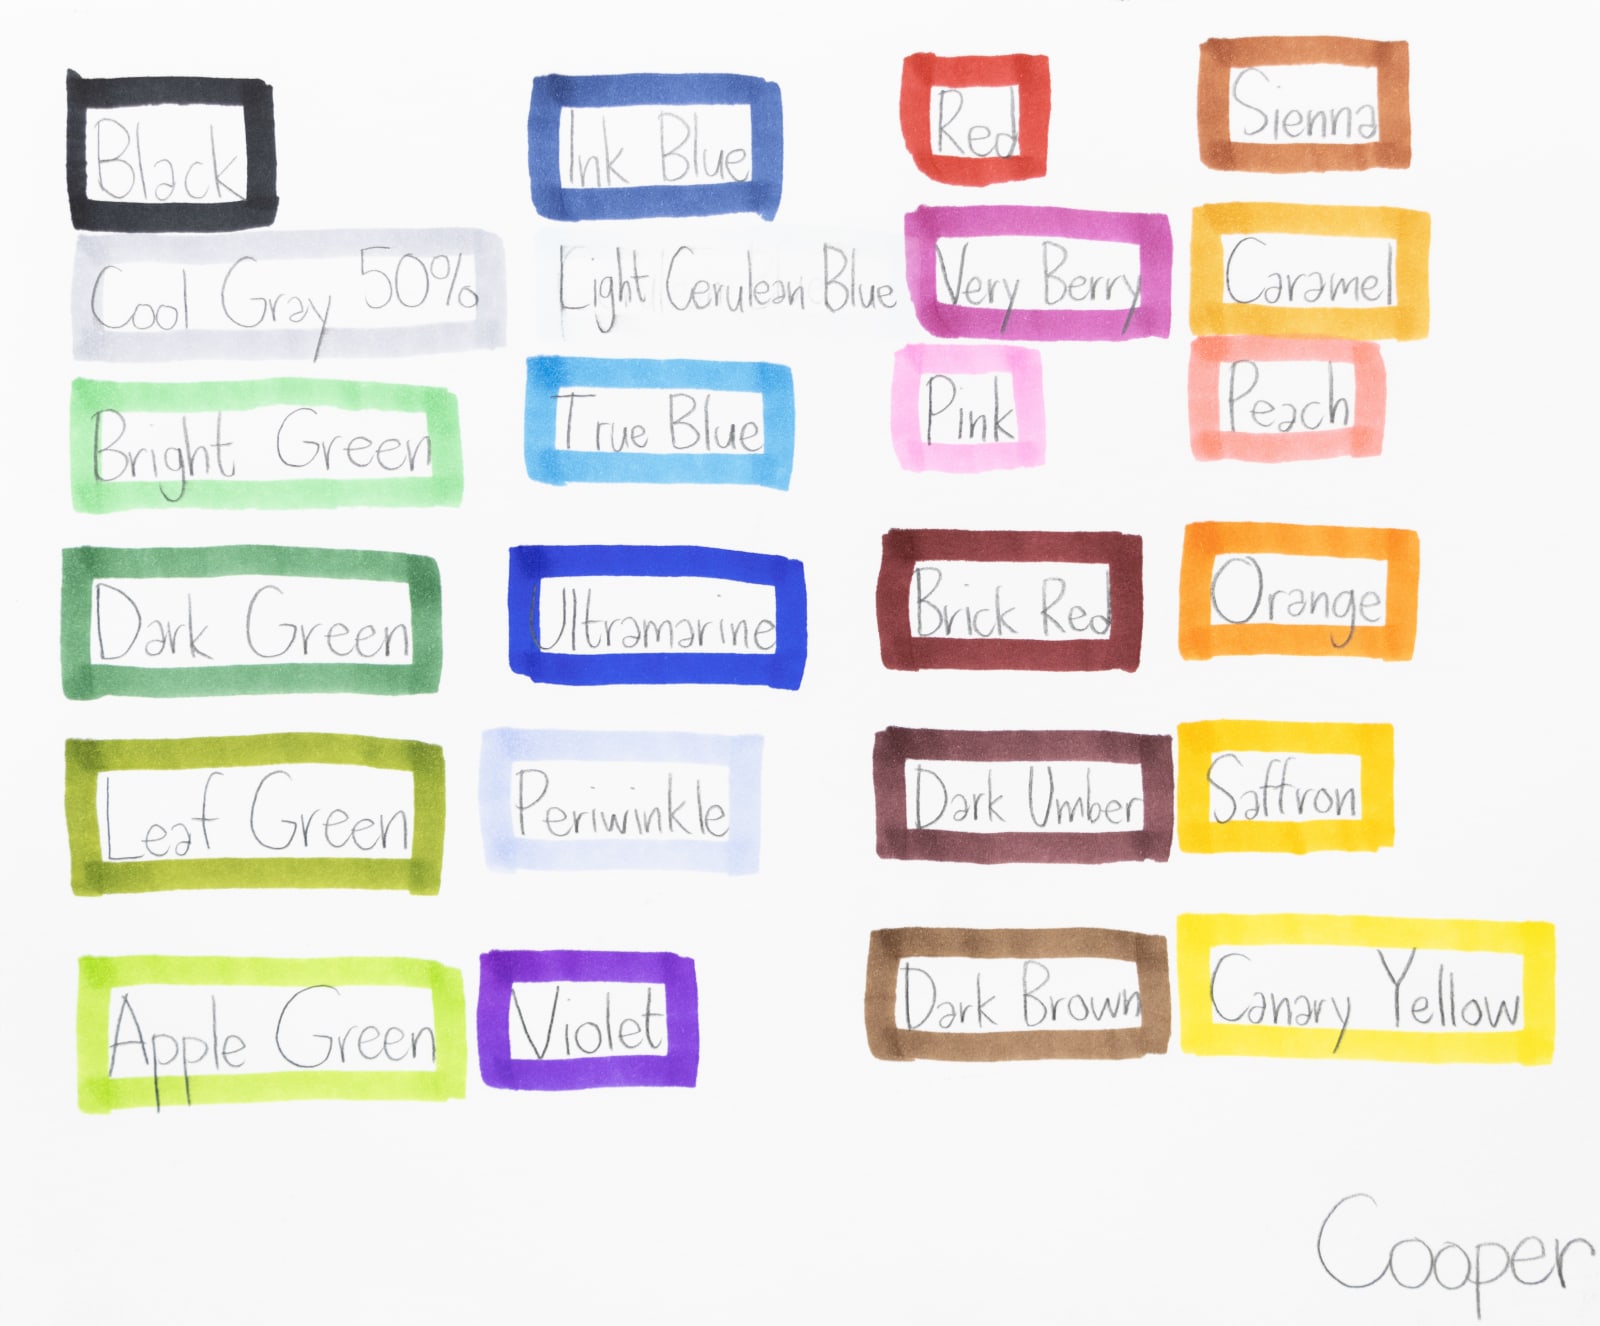 Black
Ink Blue
Red
Sienna
Cool Gray 50%
Light Cerulean Blue
Very Berry
Caramel
Bright Green
True Blue
Pink
Peach
Dark Green
Ultramarine
Brick Red
Orange
Leaf Green
Periwinkle
Dark Umber
Saffron
Apple Green
Violet
Dark Brown
Canary Yellow
Cooper